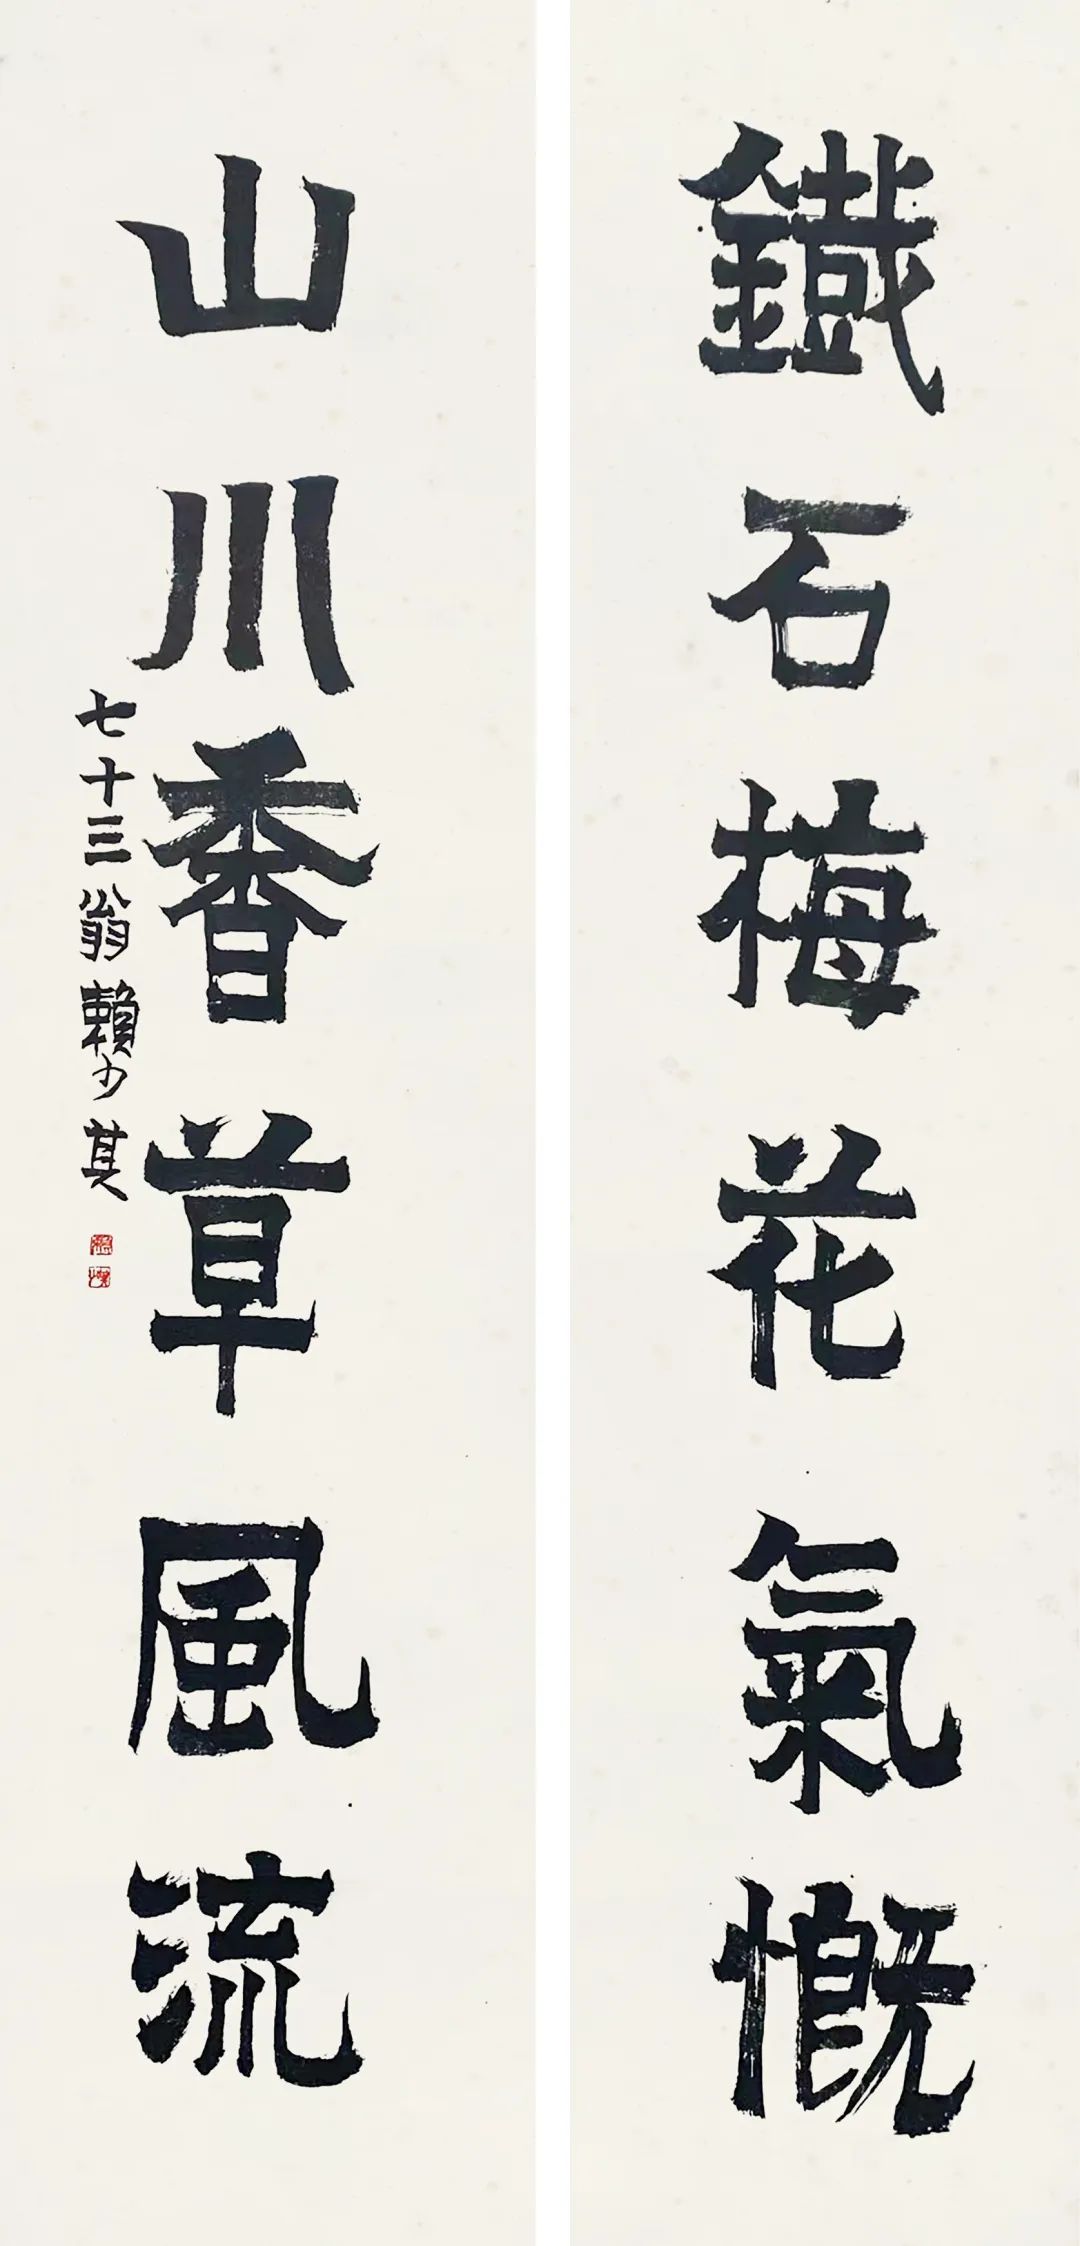 鐵石梅花氣慨
山川香草風流
七十三翁賴少其